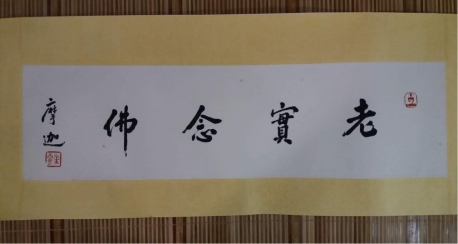 老實念佛
摩迦